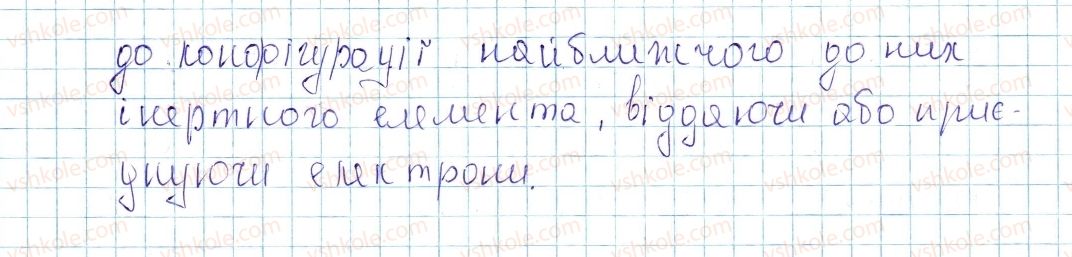 до конфігурації найближчого до них
інертного елемента, віддаючи або приє-
днуючи електрони.